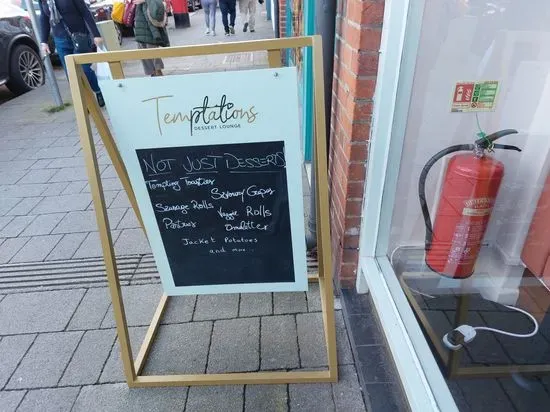 Temptations
DESSERT LOUNGE
NOT JUST DESSERTS
Tempting Toasties
Savoury Crepes
Sausage Rolls
Veggie Rolls
Pastries
Omelettes
Jacket Potatoes
and more...